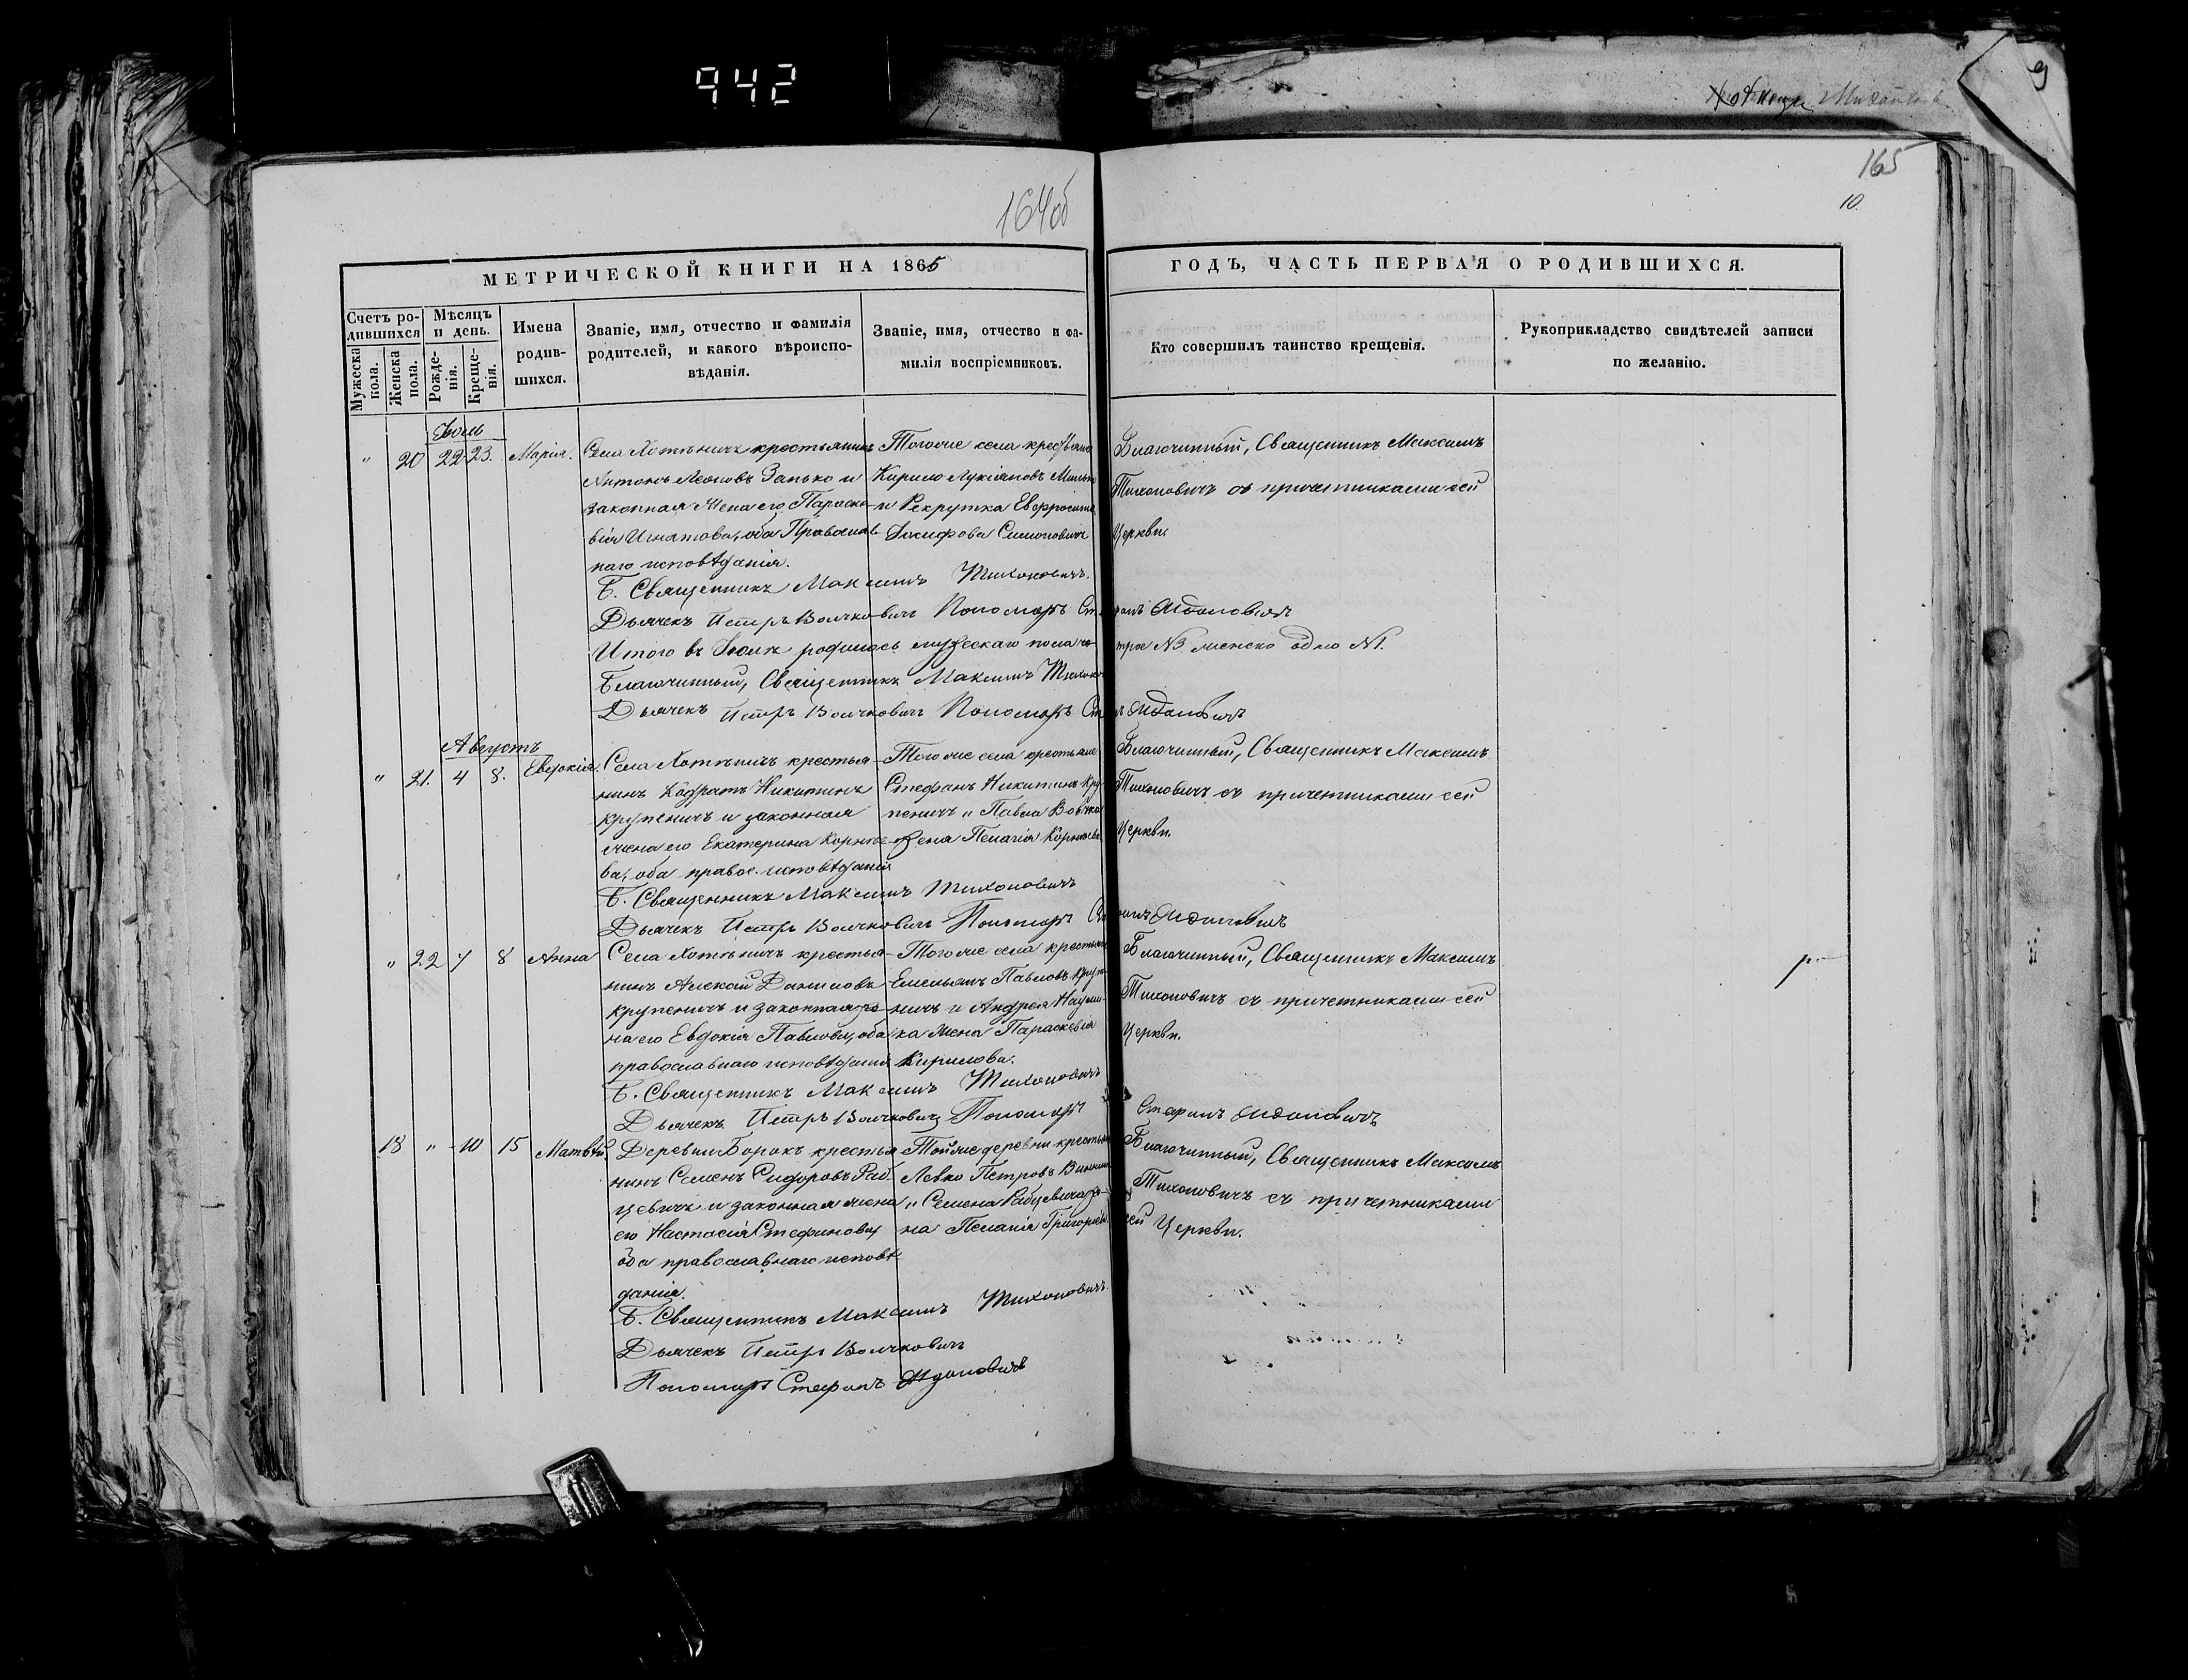 942
9
164об
165
10
МЕТРИЧЕСКОЙ КНИГИ НА 1865
ГОДЪ, ЧАСТЬ ПЕРВАЯ О РОДИВШИХСЯ.
Счетъ родившихся
Мужеска пола.
Женска пола.
Мѣсяцъ и день.
Рожденія.
Крещенія.
Имена родившихся.
Званіе, имя, отчество и фамилія родителей, и какого вѣроисповѣданія.
Званіе, имя, отчество и фамилія воспріемниковъ.
Кто совершилъ таинство крещенія.
Рукоприкладство свидѣтелей записи по желанію.
Іюль
" 20 22 23. Марія.
Села Хотѣничъ крестьянинъ
Антонъ Леоновъ Занько и
законная жена его Параске-
вія Игнатова, оба Православ-
наго исповѣданія.
Тогоже села крестьянинъ
Кирило Лукіановъ
и Рекрутка Евфросинія
Іосифова Симоновича
Благочинный, Священникъ Максимъ
Тихоновичъ съ причетниками сей
Церкви.
Б. Священникъ Максимъ Тихоновичъ.
Дьячекъ Петръ Волчковичъ Пономарь Стефанъ
Итого въ Іюлѣ родилось мужескаго пола трое №3. женска одно №1.
Благочинный, Священникъ Максимъ Тихоновичъ
Дьячекъ Петръ Волчковичъ Пономарь
Августъ
" 21. 4 8. Евдокія.
Села Хотѣничъ крестья-
нинъ Кодратъ Никитинъ
Крупеничъ и законная
жена его Екатерина Корнѣе-
ва, оба правос. исповѣданія
Тогоже села крестьяне
Стефанъ Никитинъ Кру-
пеничъ и Павла
жена Пелагія Корнѣева
Благочинный, Священникъ Максимъ
Тихоновичъ съ причетниками сей
Церкви.
Б. Священникъ Максимъ Тихоновичъ
Дьячекъ Петръ Волчковичъ Пономарь
" 22 7 8 Анна
Села Хотѣничъ крестья-
нинъ Алексѣй Даниловъ
Крупеничъ и законная же-
на его Евдокія Павлова, оба
православнаго исповѣданія
Тогоже села крестьяне
Емельянъ Павловъ Крупе-
ничъ и Андрея Науми-
ка жена Параскевія
Кирилова.
Благочинный, Священникъ Максимъ
Тихоновичъ съ причетниками сей
Церкви.
Б. Священникъ Максимъ Тихоновичъ
Дьячекъ Петръ Волчковичъ Пономарь Стефанъ
18 " 10 15 Матвѣй.
Деревни Борокъ крестья-
нинъ Семенъ Сидоровъ Раб-
цевичъ и законная жена
его Настасія Стефанова
оба православнаго исповѣ-
данія.
Тойже деревни крестьянинъ
Левко Петровъ
и Семена Рабцевича же-
на Пелагія Григорьева
Благочинный, Священникъ Максимъ
Тихоновичъ съ причетниками
сей Церкви.
Б. Священникъ Максимъ Тихоновичъ.
Дьячекъ Петръ Волчковичъ
Пономарь Стефанъ